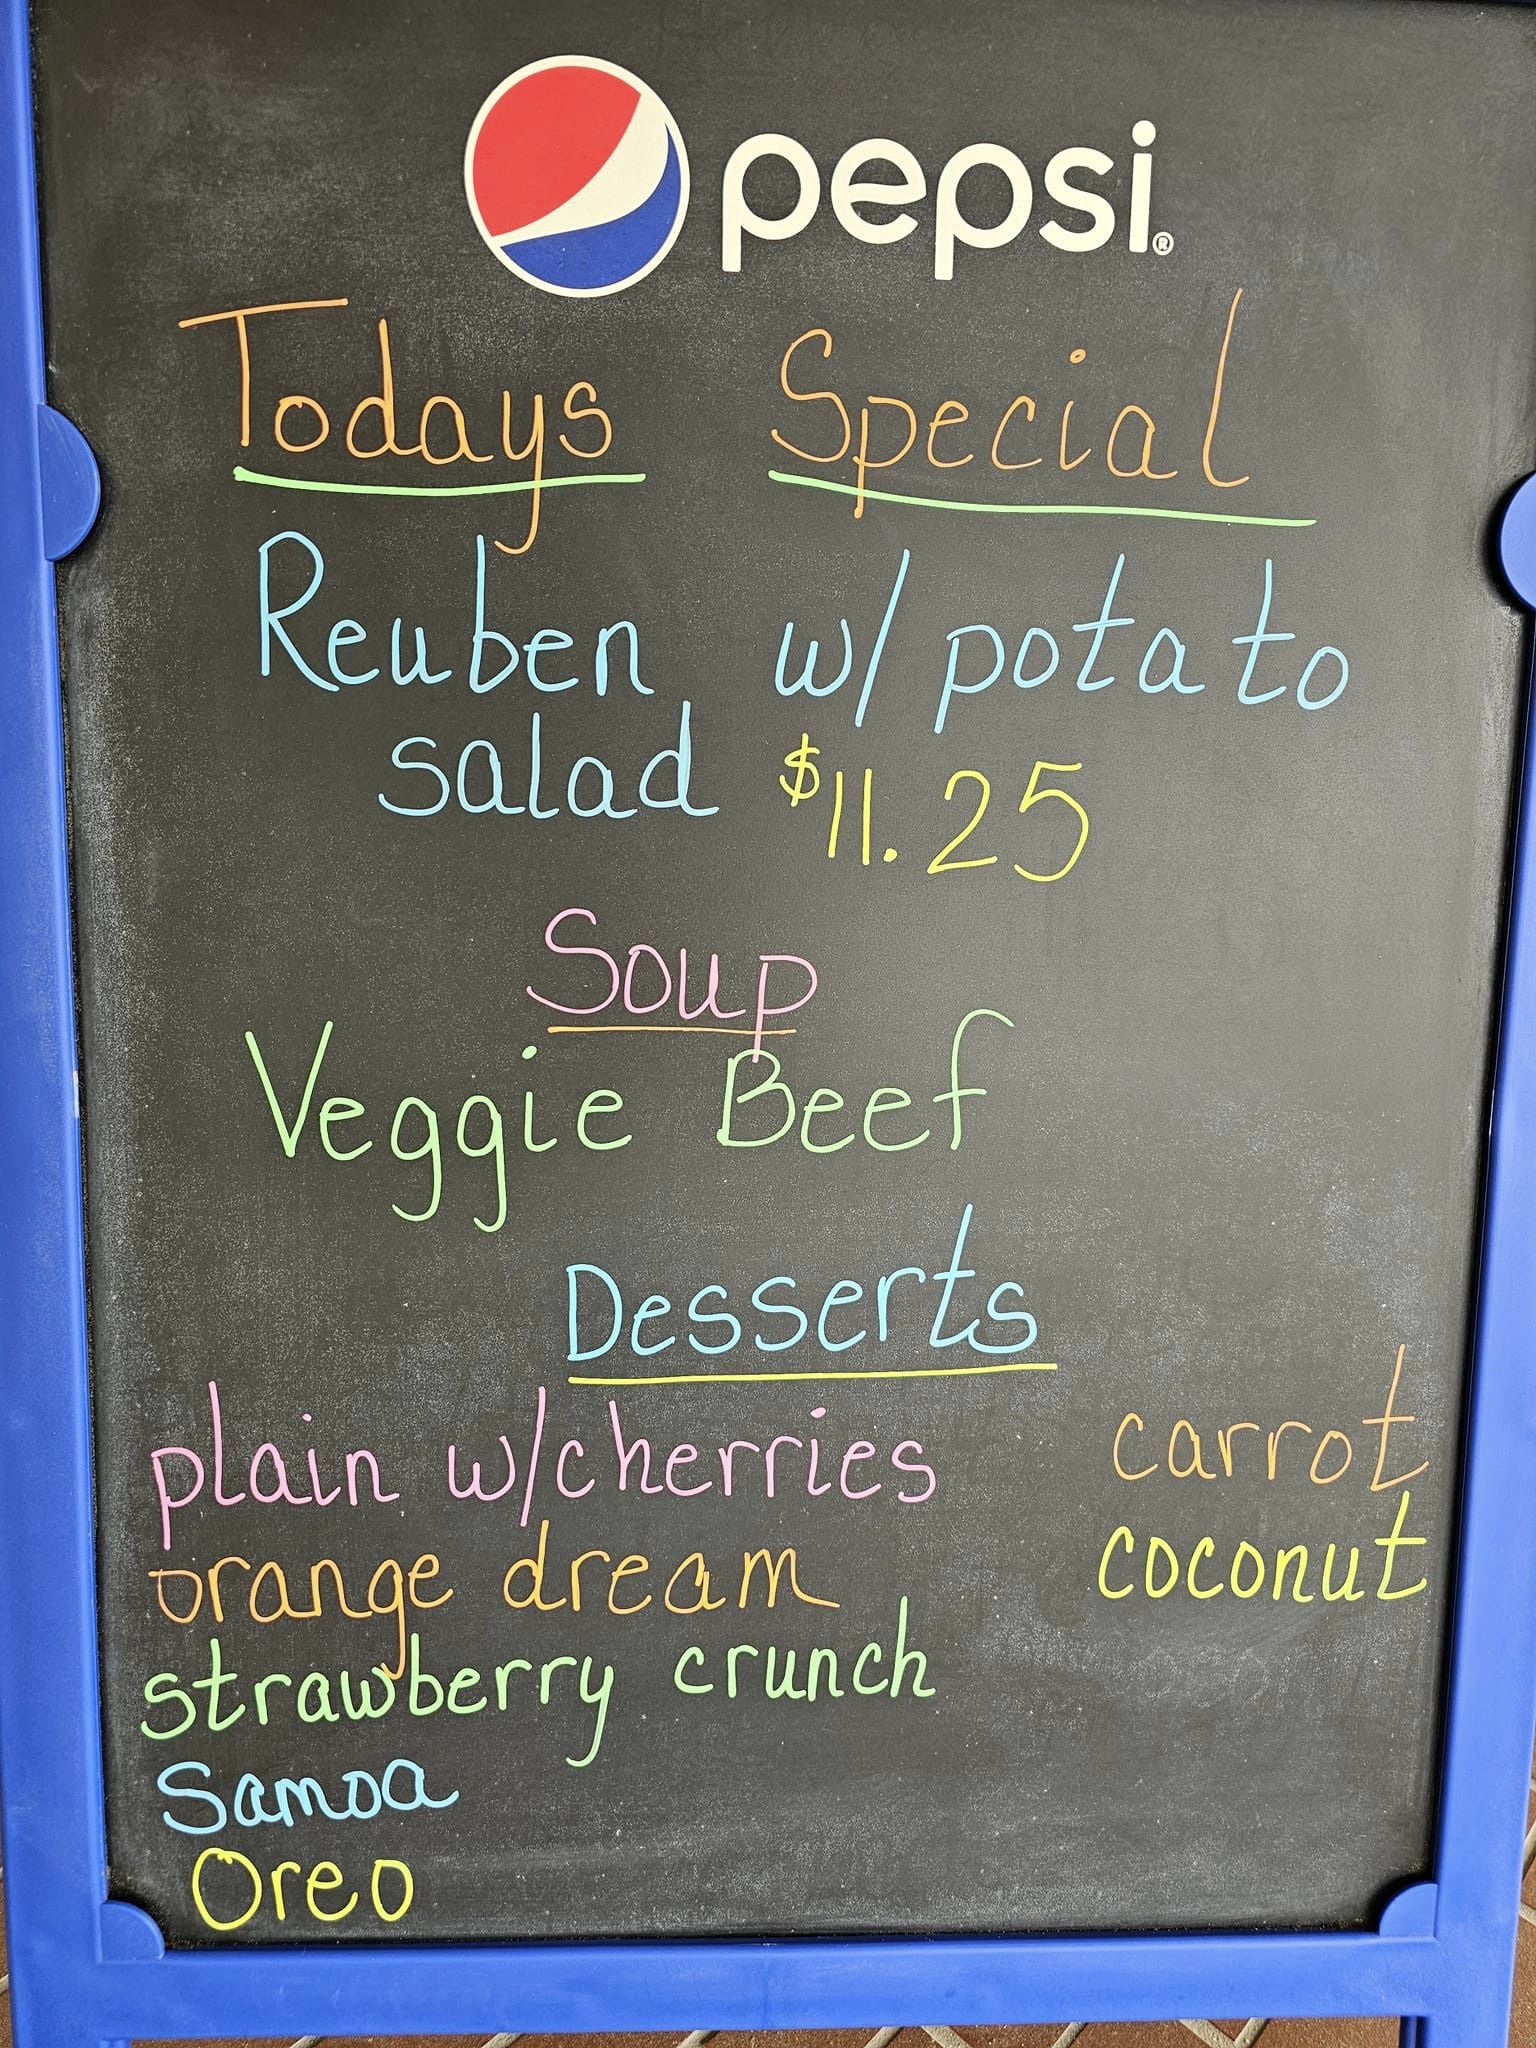 pepsi®
Todays Special
Reuben w/ potato
salad $11.25
Soup
Veggie Beef
Desserts
plain w/cherries
orange dream
strawberry crunch
Samoa
Oreo
carrot
coconut